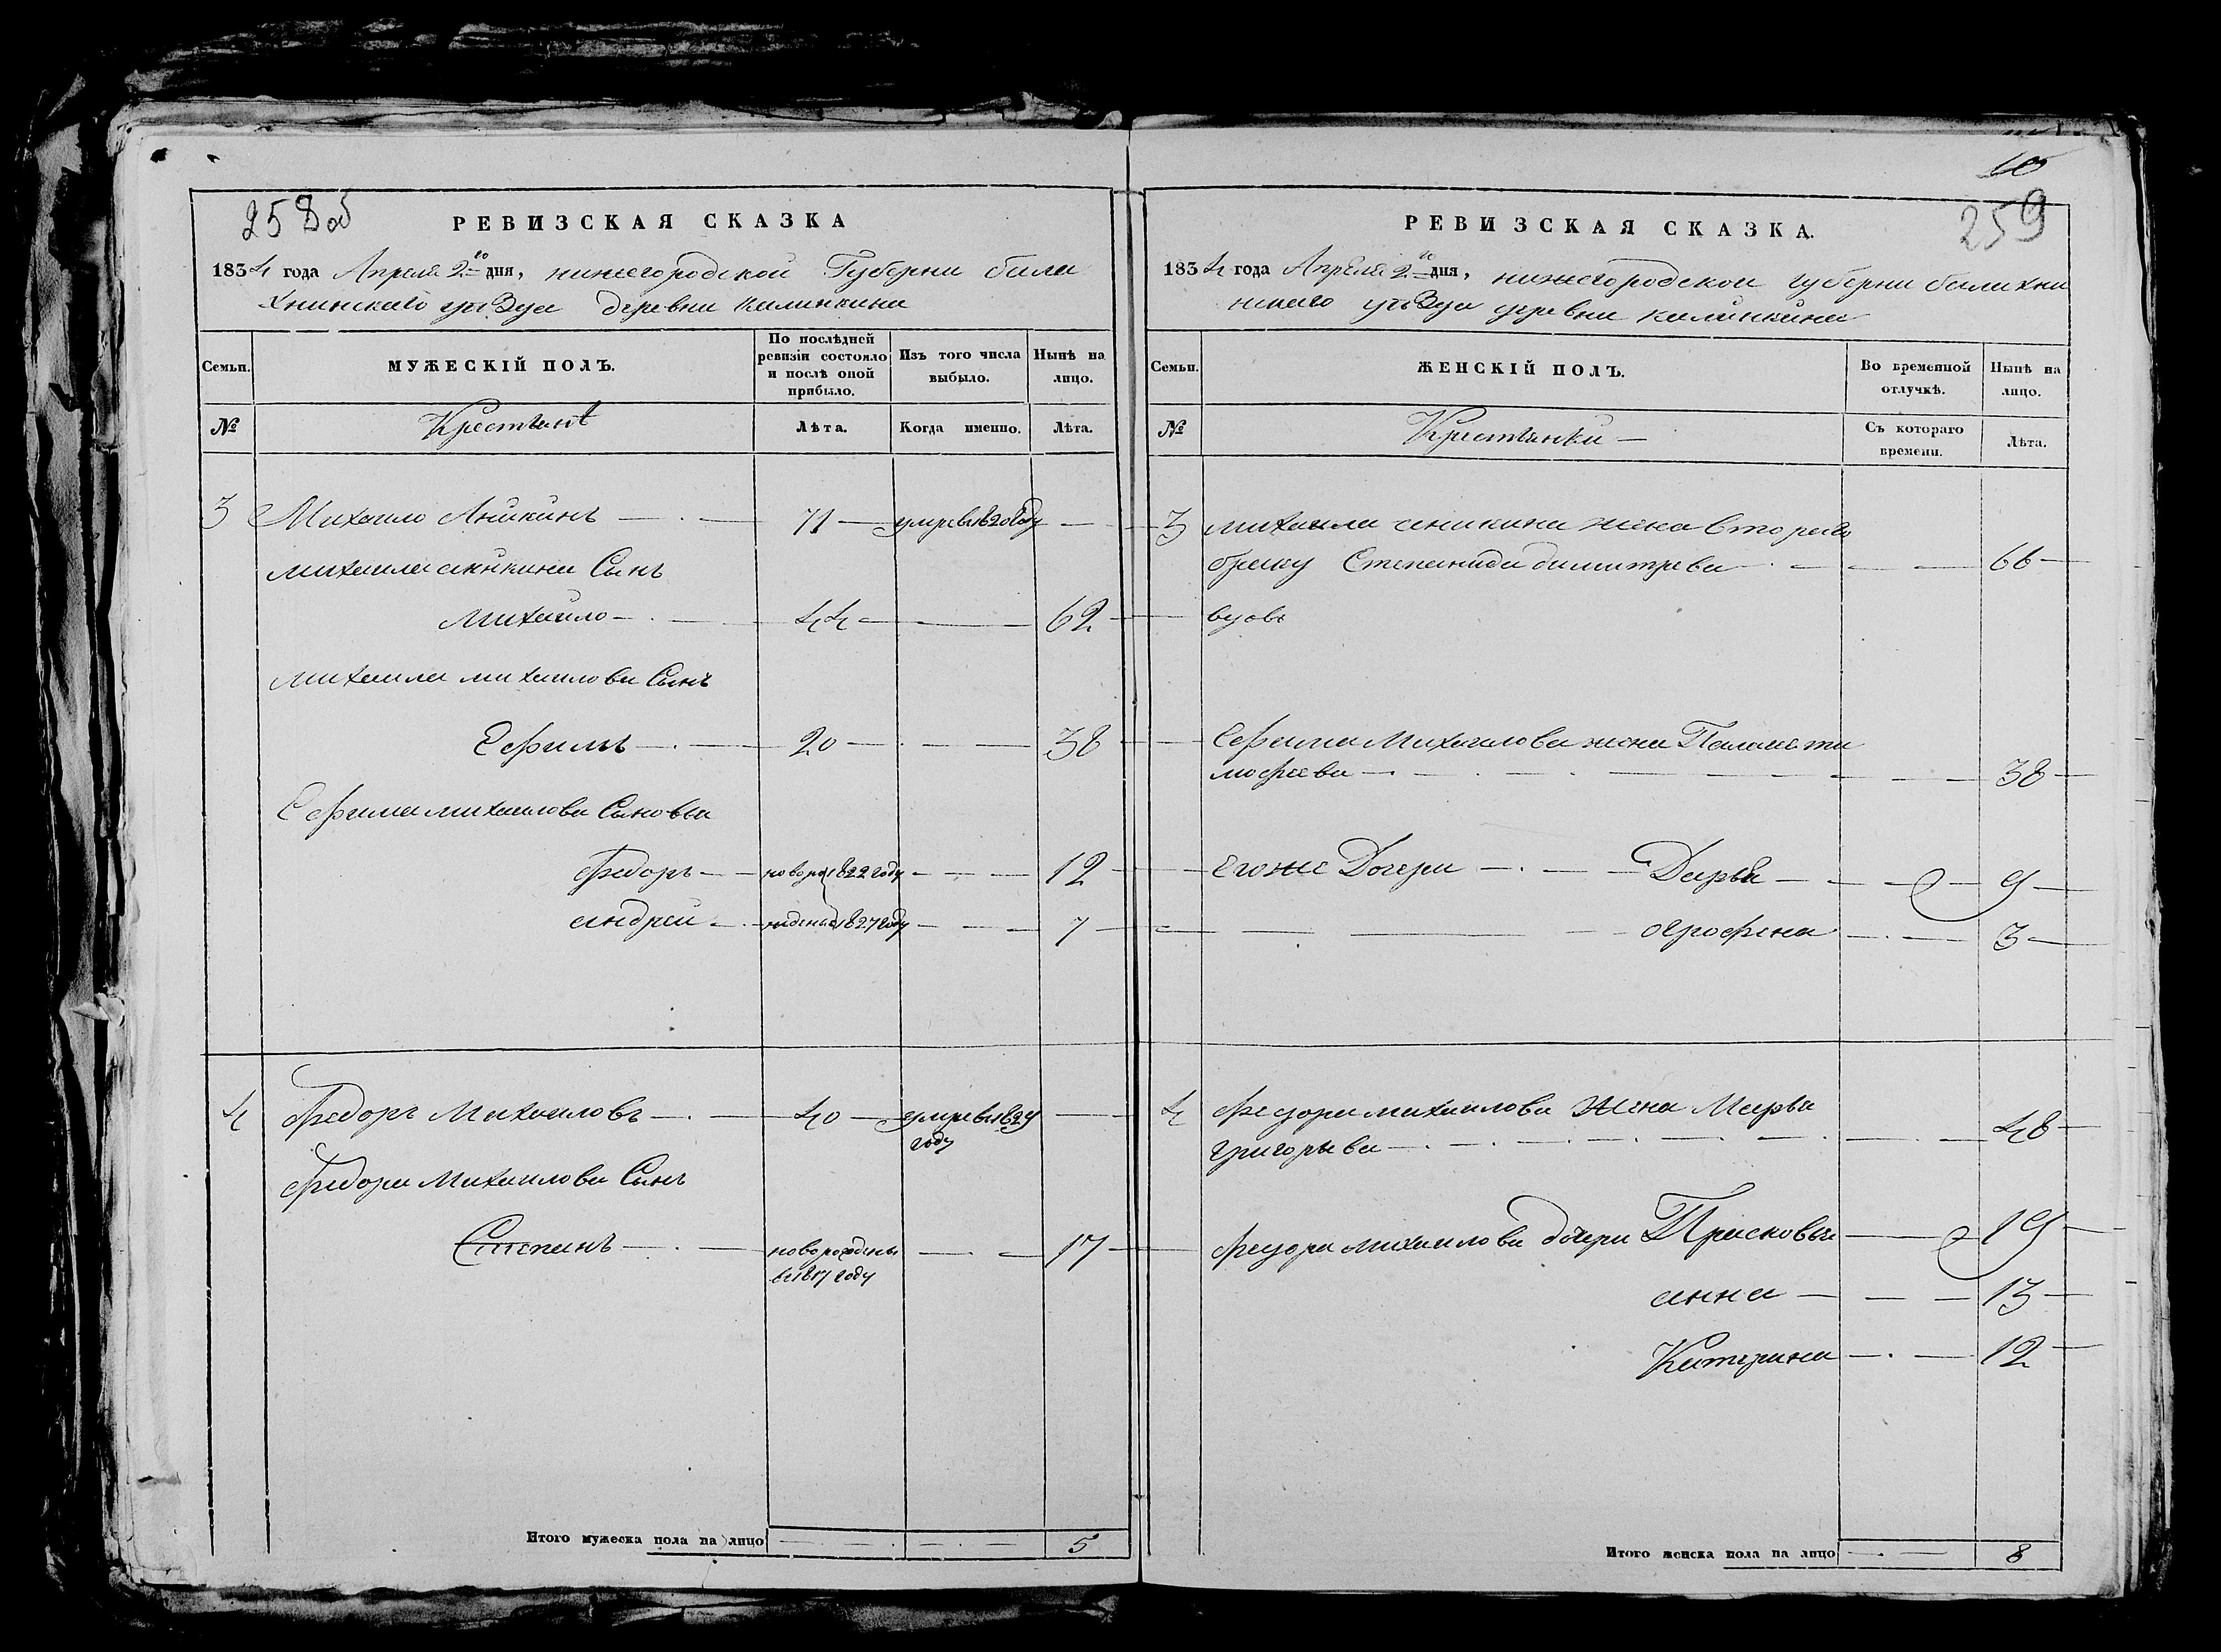 258 об
РЕВИЗСКАЯ СКАЗКА
1834 года Апреля 2го дня, нижегородской Губерни бала
хнинскаго уѣзда деревни калинкина
Семьи.
МУЖЕСКІЙ ПОЛЪ.
По послѣдней
ревизіи состояло
и послѣ оной
прибыло.
Изъ того числа
выбыло.
Нынѣ на
лицо.
№
Крестьянѣ
Лѣта.
Когда именно.
Лѣта.
3 Михаило Аникинъ — 71 — умре в 1820 году
михаила аникина Сынъ
михаило — 44 — 62
михаила михаилова Сынъ
Ефимъ — 20 — 38
Ефима михаилова Сыновья
федоръ — новоро 1822 году — 12
андрей — жденые 1827 году — 7
4 федоръ Михаиловъ — 40 — умре в 1829
году
федора Михаилова Сынъ
Степанъ — новорожденны — 17
в 1817 году
Итого мужеска пола на лицо — 5
10
259
РЕВИЗСКАЯ СКАЗКА.
1834 года Апреля 2го дня, нижегородскои губерни балахни
нскаго уѣзда деревни калинкина
Семьи.
ЖЕНСКІЙ ПОЛЪ.
Во временной
отлучкѣ.
Нынѣ на
лицо.
№
Крестьянки —
Съ котораго
времени.
Лѣта.
3 михаила аникина жена втораго
браку Степанида димитрева — 66 —
вдова
Ефима Михаилова жена Палагея ти
мофеева — 38 —
Егоже Дочери — Дарья — 9 —
огрофена — 3 —
4 федора михаилова Жена Марья
григорьева — 48 —
федора михаилова дочери Прасковья — 19 —
анна — 13 —
Катерина — 12 —
Итого женска пола на лицо — 8